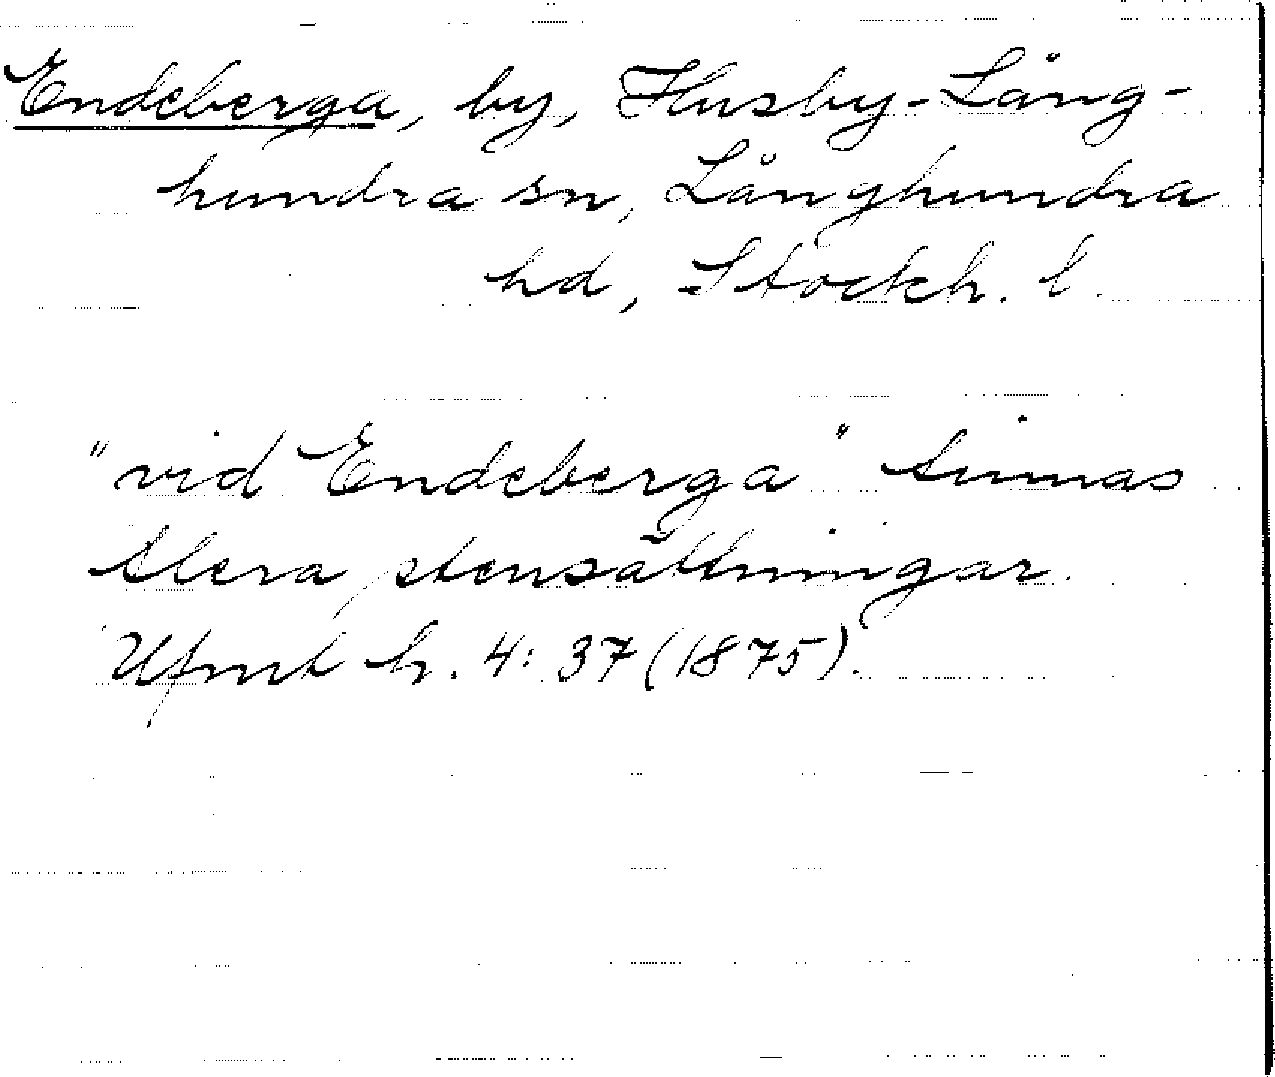 Endeberga, by, Husby-Lång-
hundra sn, Långhundra
hd, Stockh. l.
"vid Endeberga" finnas
flera stensättningar.
Ufmt h. 4: 37 (1875).